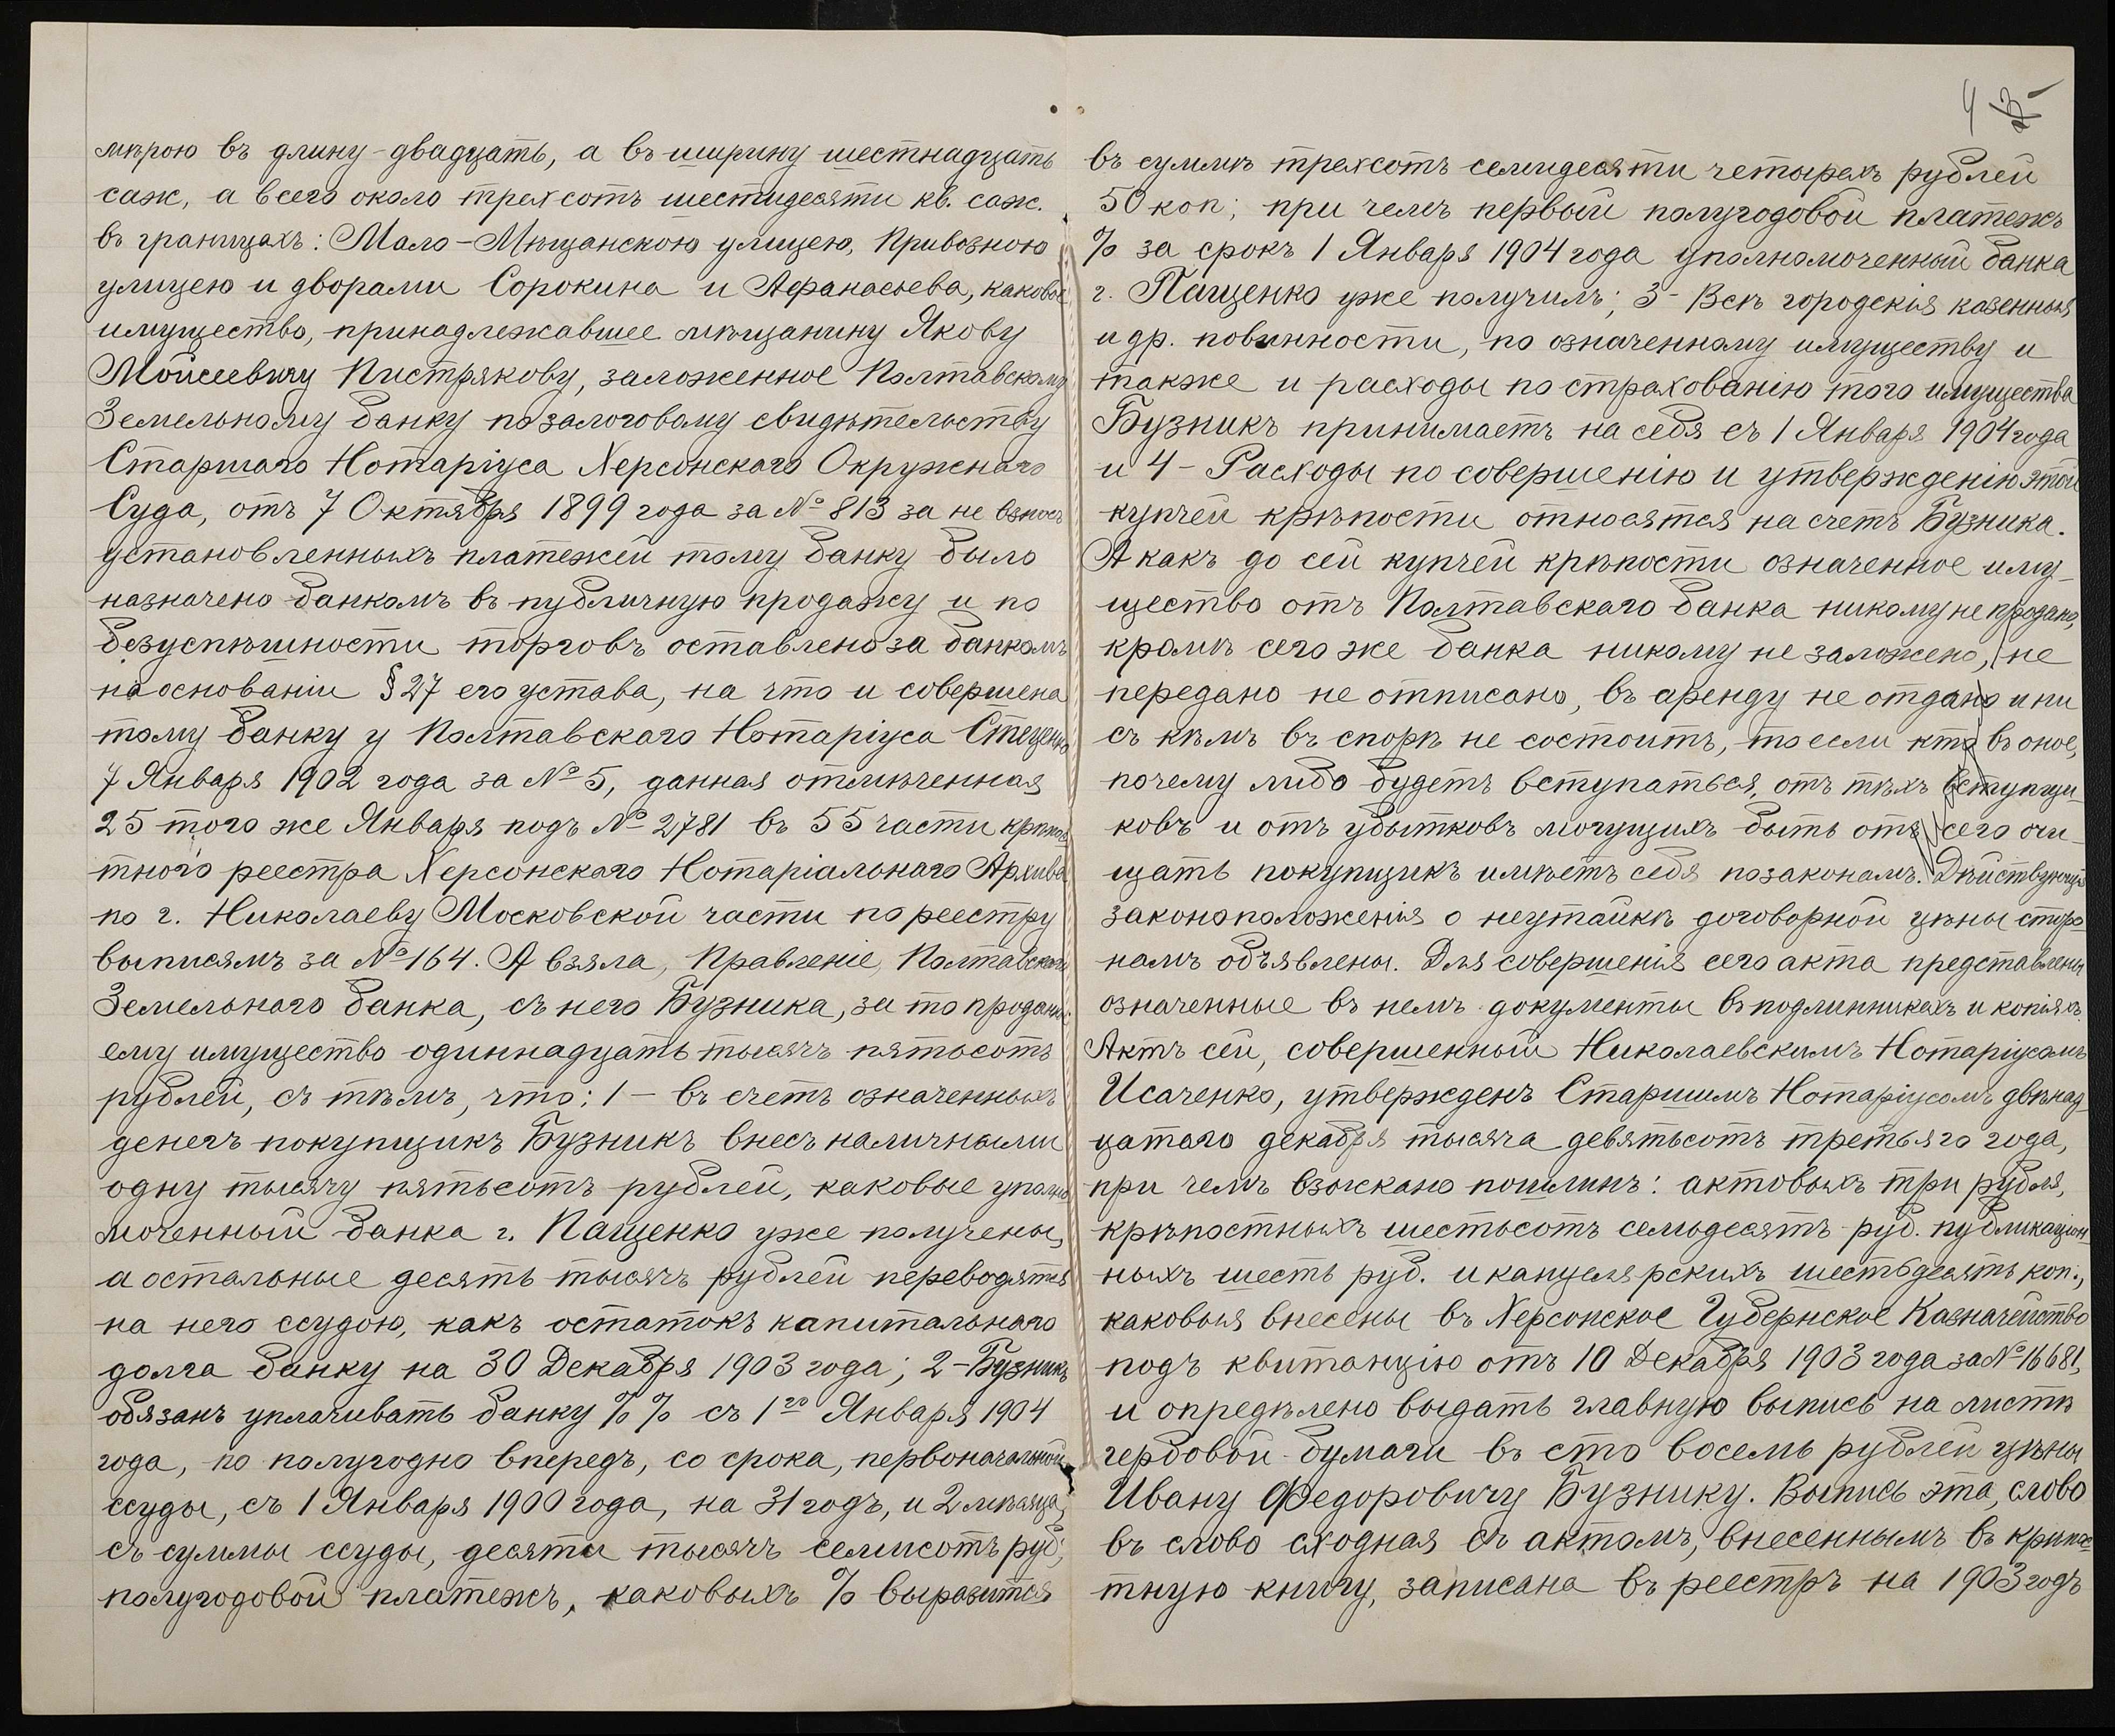 мѣрою въ длину - двадцать, а въ ширину шестнадцать
саж, а всего около трехсотъ шестидесяти кв. саж.
въ границахъ: Мало-Мѣщанскою улицею, Привозною
улицею и дворами Сорокина и Афанасьева, каковое
имущество, принадлежавшее мѣщанину Якову
Мойсеевичу Пистрякову, заложенное Полтавскому
Земельному банку по залоговому свидѣтельству
Старшаго Нотаріуса Херсонскаго Окружнаго
Суда, отъ 7 Октября 1899 года за № 813 за не взносъ
установленныхъ платежей тому банку было
назначено банкомъ въ публичную продажу и по
безуспѣшности торговъ оставлено за банкомъ
на основаніи § 27 его устава, на что и совершена
тому банку у Полтавскаго Нотаріуса Стеценко
7 Января 1902 года за № 5, данная отмѣченная
25 того же Января подъ № 2781 въ 55 части крѣпос
тного реестра Херсонскаго Нотаріальнаго Архива
по г. Николаеву Московской части по реестру
выписямъ за № 164. А взяла, Правленіе, Полтавскаго
Земельнаго банка, съ него Бузника, за то проданное
ему имущество одиннадцать тысячъ пятьсотъ
рублей, съ тѣмъ, что: 1 - въ счетъ означенныхъ
денегъ покупщикъ Бузникъ внесъ наличными
одну тысячу пятьсотъ рублей, каковые уполно
моченный банка г. Пащенко уже получены,
а остальные десять тысячъ рублей переводятся
на него ссудою, какъ остатокъ капитальнаго
долга банку на 30 Декабря 1903 года; 2 - Бузникъ
обязанъ уплачивать банку %% съ 1го Января 1904
года, по полугодно впередъ, со срока, первоначальной
ссуды, съ 1 Января 1900 года, на 31 годъ, и 2 мѣсяца,
съ суммы ссуды, десяти тысячъ семисотъ руб.,
полугодовой платежъ, каковыхъ % выразится
4
въ суммѣ трехсотъ семидесяти четырехъ рублей
50 коп; при чемъ первый полугодовой платежъ
% за срокъ 1 Января 1904 года уполномоченный банка
г. Пащенко уже получилъ; 3 - Всѣ городскія казенныя
и др. повинности, по означенному имуществу и
также и расходы по страхованію того имущества
Бузникъ принимаетъ на себя съ 1 Января 1904 года
и 4 - Расходы по совершенію и утвержденію этой
купчей крѣпости относятся на счетъ Бузника.
А какъ до сей купчей крѣпости означенное иму-
щество отъ Полтавскаго банка никому не продано,
кромѣ сего же банка никому не заложено, не
передано не отписано, въ аренду не отдано и ни
съ кѣмъ въ спорѣ не состоитъ, то если кто въ оное,
почему либо будетъ вступаться, отъ тѣхъ вступщи-
ковъ и отъ убытковъ могущихъ быть отъ сего очи-
щать покупщикъ имѣетъ себя по законамъ. Дѣйствующія
законоположенія о неутайкѣ договорной цѣны сторо
намъ объявлены. Для совершенія сего акта представлены
означенные въ немъ документы въ подлинникахъ и копіяхъ.
Актъ сей, совершенный Николаевскимъ Нотаріусомъ
Исаченко, утвержденъ Старшимъ Нотаріусомъ двѣнад-
цатаго декабря тысяча девятьсотъ третьяго года,
при чемъ взыскано пошлинъ: актовыхъ три рубля,
крѣпостныхъ шестьсотъ семьдесятъ руб. публикаціон-
ныхъ шесть руб. и канцелярскихъ шестьдесятъ коп.,
каковыя внесены въ Херсонское Губернское Казначейство
подъ квитанцію отъ 10 Декабря 1903 года за № 16681,
и опредѣлено выдать главную выпись на листѣ
гербовой бумаги въ сто восемь рублей цѣны
Ивану Федоровичу Бузнику. Выпись эта, слово
въ слово сходная съ актомъ, внесеннымъ въ крѣпос
тную книгу, записана въ реестръ на 1903 годъ